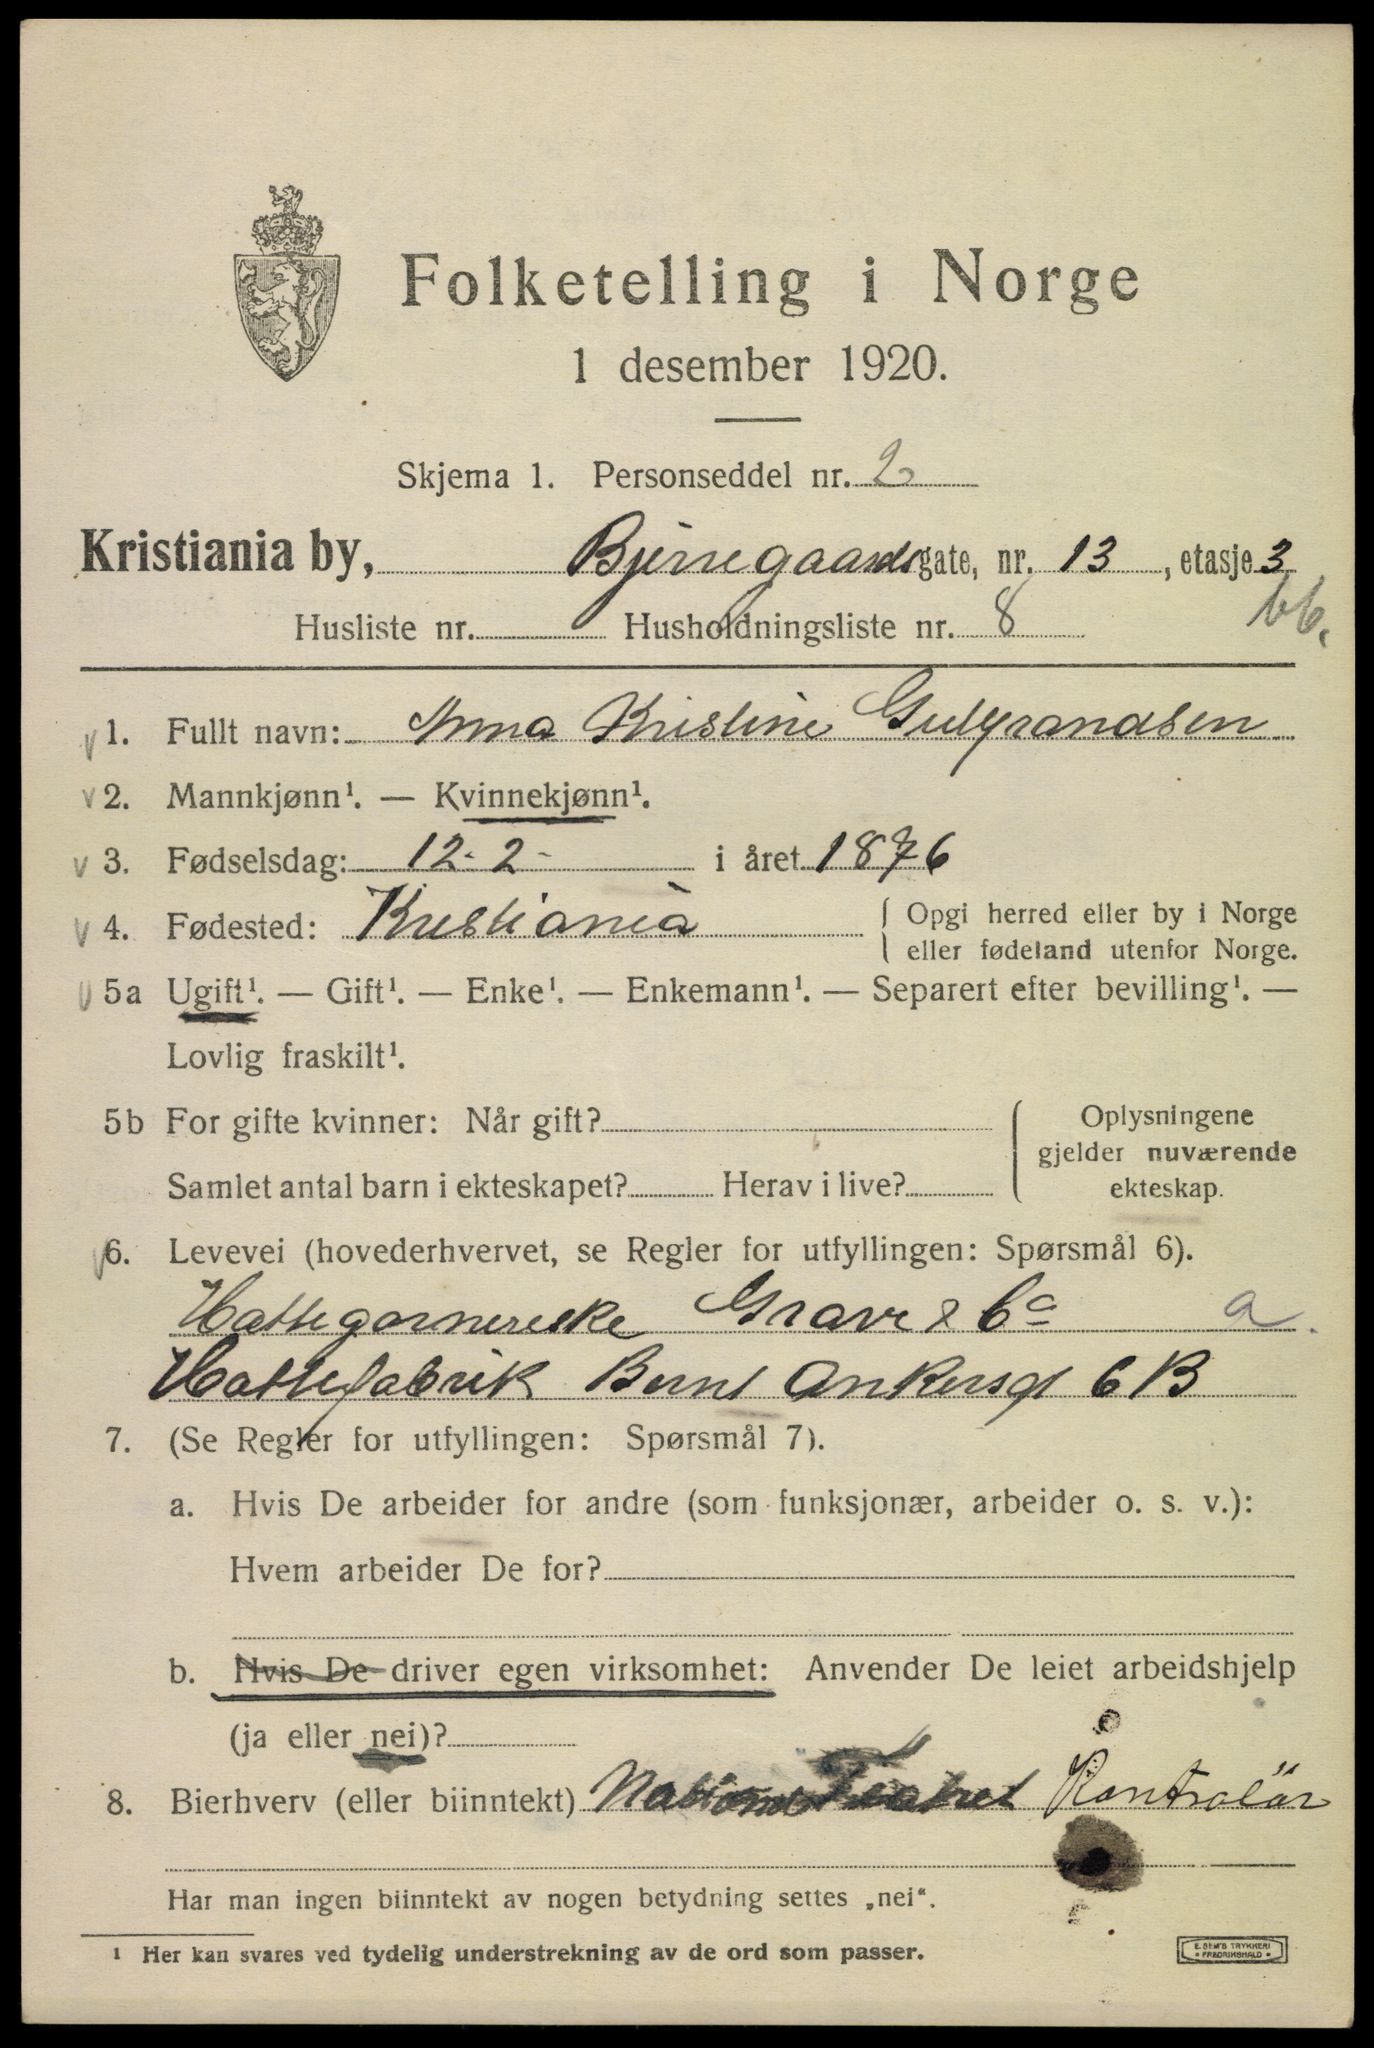 Folketelling i Norge
1 desember 1920.
Skjema 1. Personseddel nr. 2
Kristiania by, Bjerregaardsgate, nr. 13, etasje 3
Husliste nr. Husholdningsliste nr. 8 bb.
1. Fullt navn: Anna Kristine Gulbrandsen
2. Mannkjønn¹. — Kvinnekjønn¹.
3. Fødselsdag: 12-2- i året 1876
4. Fødested: Kristiania { Opgi herred eller by i Norge
eller fødeland utenfor Norge.
5a Ugift¹. — Gift¹. — Enke¹. — Enkemann¹. — Separert efter bevilling¹. —
Lovlig fraskilt¹.
5b For gifte kvinner: Når gift?
Samlet antal barn i ekteskapet? Herav i live?
Oplysningene
gjelder nuværende
ekteskap.
6. Levevei (hovederhvervet, se Regler for utfyllingen: Spørsmål 6).
Hattegarnereske Grave & Co a.
Hattefabrik Bernt Ankersgt 6 B
7. (Se Regler for utfyllingen: Spørsmål 7).
a. Hvis De arbeider for andre (som funksjonær, arbeider o. s. v.):
Hvem arbeider De for?
b. Hvis De driver egen virksomhet: Anvender De leiet arbeidshjelp
(ja eller nei)?
8. Bierhverv (eller biinntekt) National Teatret Kontrolör
Har man ingen biinntekt av nogen betydning settes „nei“.
¹ Her kan svares ved tydelig understrekning av de ord som passer.
E. SEM'S TRYKKERI
* FREDRIKSHALD *